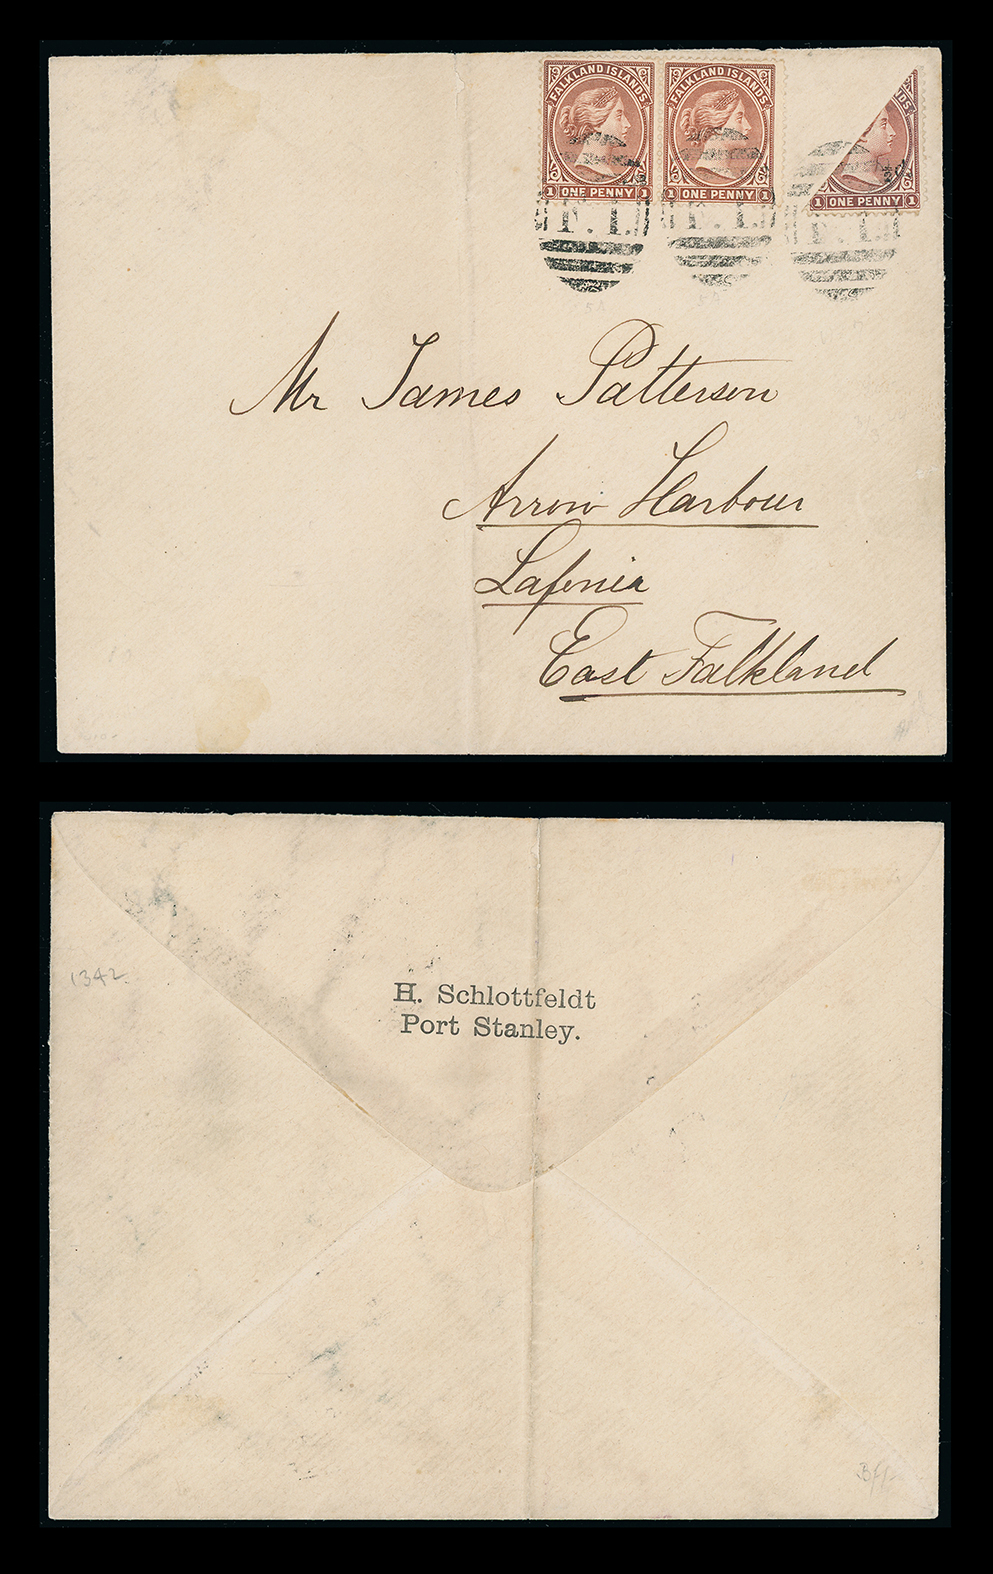 FALKLAND ISLANDS. FALKLAND ISLANDS.
½d.
1 ONE PENNY 1 1 ONE PENNY 1 1 ONE PENNY 1
F. I. F. I. F. I.
Mr James Patterson
Arrow Harbour
Lafonia
East Falkland
1342
H. Schlottfeldt
Port Stanley.